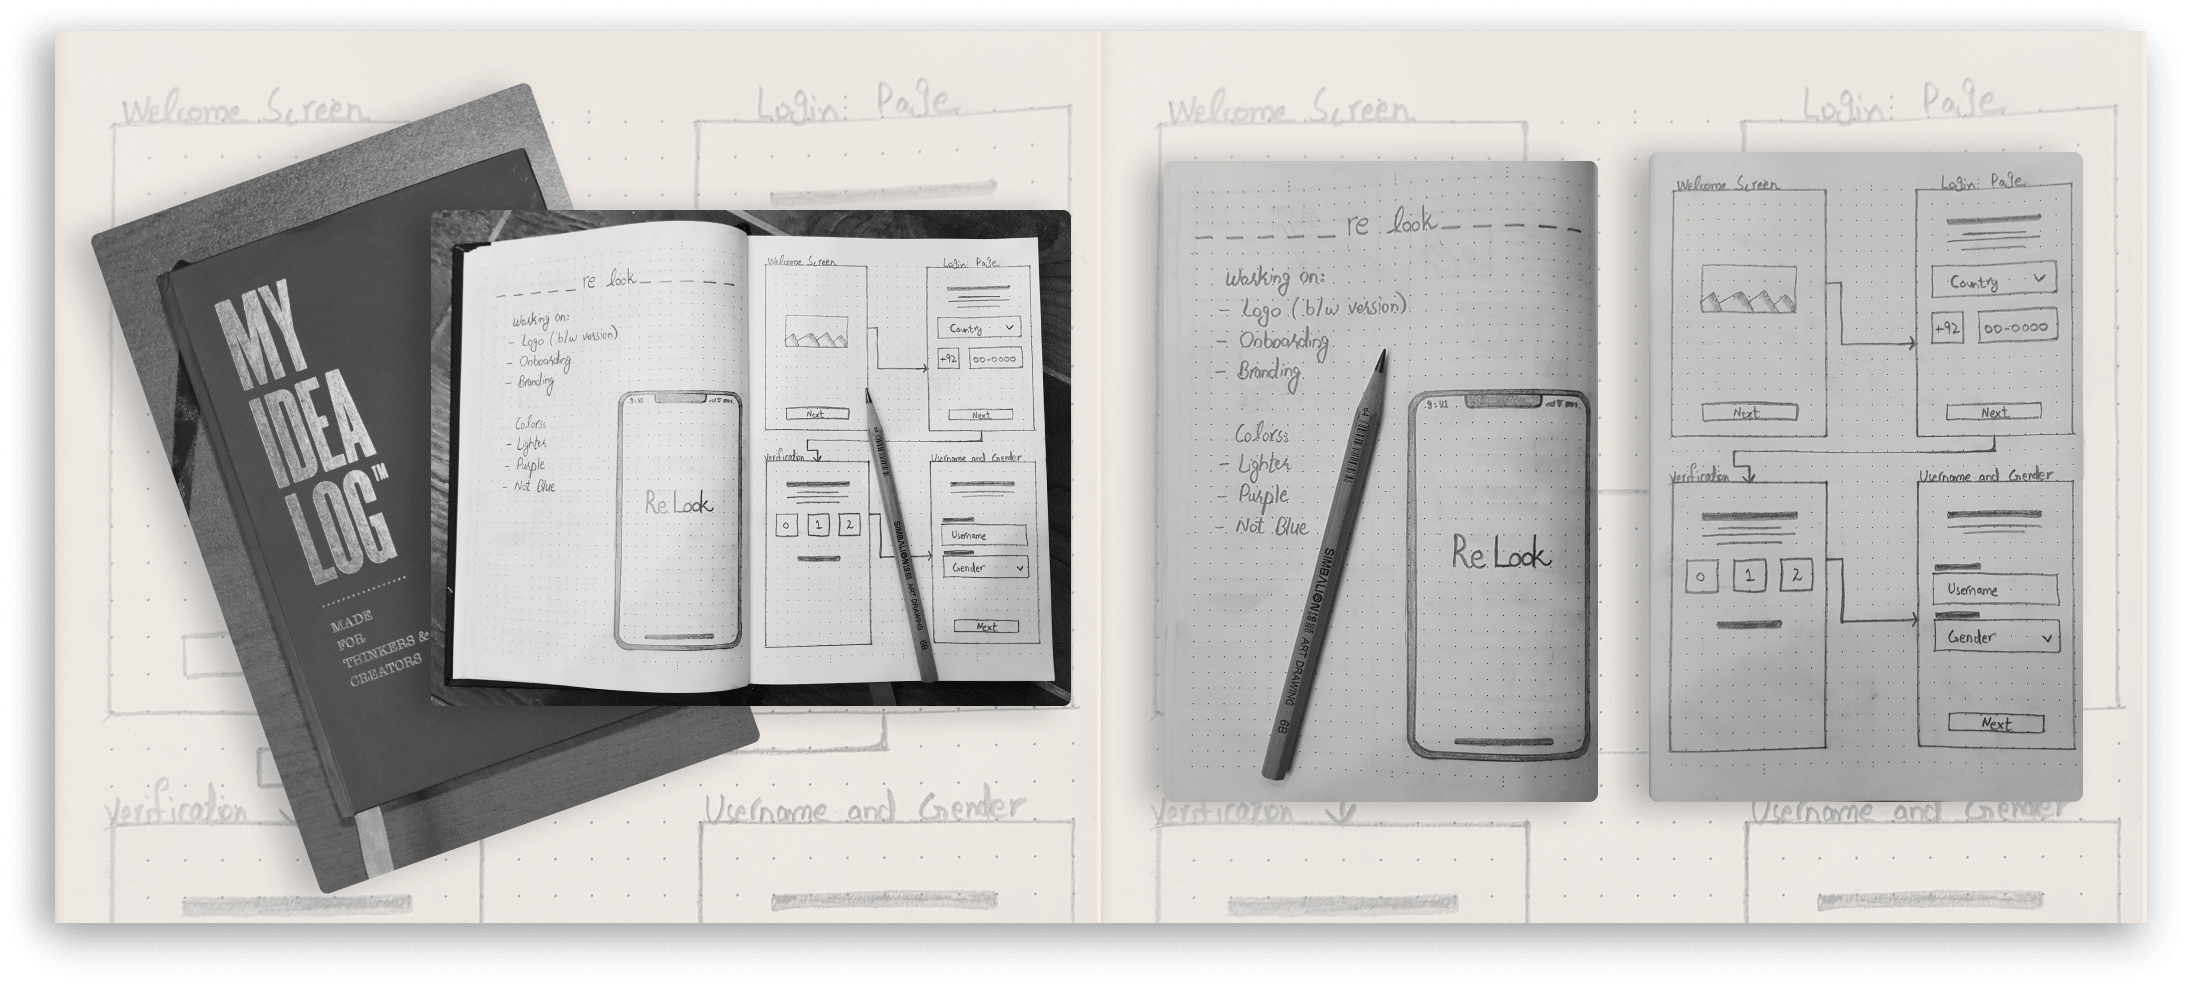 Welcome Screen
Login: Page
MY
IDEA
LOG™
MADE
FOR
THINKERS &
CREATORS
re look
Working on:
- Logo (b/w version)
- Onboarding
- Branding
Colorss
- Lighter
- Purple
- Not Blue
9:41
Re Look
Welcome Screen
Next
Login: Page
Country
+92
00-0000
Next
Verification
0 1 2
Username and Gender
Username
Gender
Next
SIMBALION ART DRAWING 6B
Verification
Username and Gender
Welcome Screen
Login: Page
re look
Working on:
- Logo (b/w version)
- Onboarding
- Branding
Colorss
- Lighter
- Purple
- Not Blue
9:41
Re Look
SIMBALION ART DRAWING 6B
Welcome Screen
Next
Login: Page
Country
+92
00-0000
Next
Verification
0 1 2
Username and Gender
Username
Gender
Next
Verification
Username and Gender